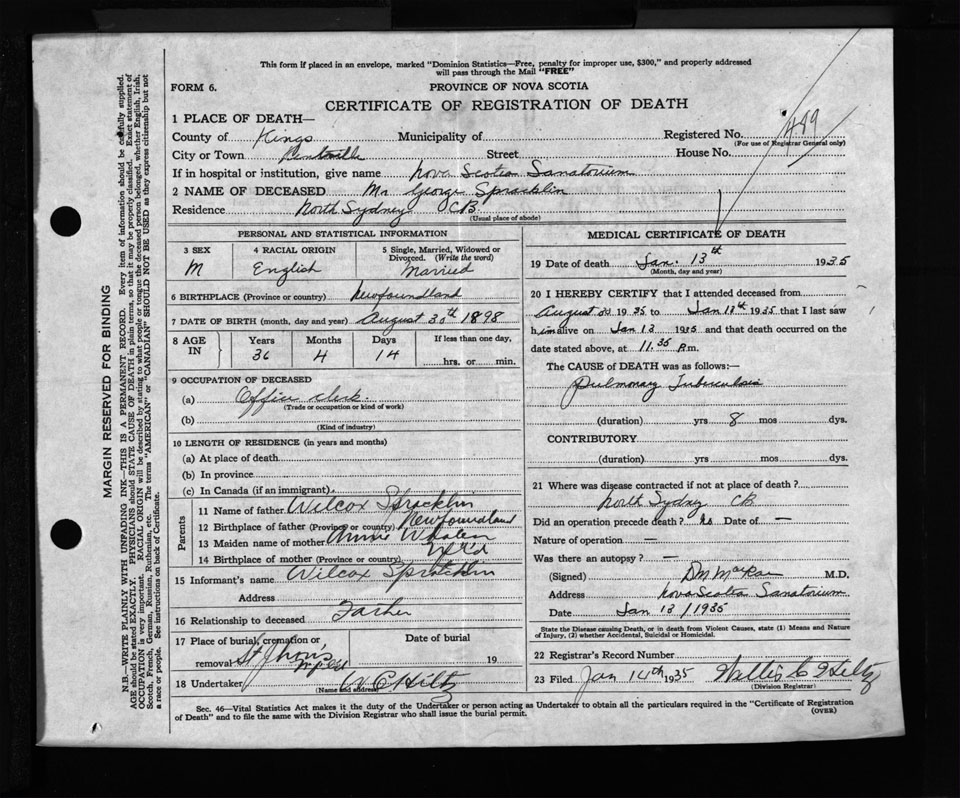 This form if placed in an envelope, marked "Dominion Statistics—Free, penalty for improper use, $300," and properly addressed
will pass through the Mail "FREE"
FORM 6.
PROVINCE OF NOVA SCOTIA
CERTIFICATE OF REGISTRATION OF DEATH
1 PLACE OF DEATH—
County of Kings Municipality of Registered No. 499
(For use of Registrar General only)
City or Town Kentville Street House No.
If in hospital or institution, give name Nova Scotia Sanatorium
2 NAME OF DECEASED Mr George Spracklin
Residence North Sydney CB
(Usual place of abode)
PERSONAL AND STATISTICAL INFORMATION
3 SEX 4 RACIAL ORIGIN 5 Single, Married, Widowed or
Divorced. (Write the word)
M English Married
6 BIRTHPLACE (Province or country) Newfoundland
7 DATE OF BIRTH (month, day and year) August 30th 1898
8 AGE IN Years Months Days If less than one day,
36 4 14 hrs. or min.
9 OCCUPATION OF DECEASED
(a) Office clerk.
(Trade or occupation or kind of work)
(b)
(Kind of industry)
10 LENGTH OF RESIDENCE (in years and months)
(a) At place of death
(b) In province
(c) In Canada (if an immigrant)
Parents
11 Name of father Wilcox Spracklin
12 Birthplace of father (Province or country) Newfoundland
13 Maiden name of mother Annie Whalen
14 Birthplace of mother (Province or country) Nfld
15 Informant's name Wilcox Spracklin
Address
16 Relationship to deceased Father
17 Place of burial, cremation or Date of burial
removal St Jhons Nfld 19
18 Undertaker W C Hiltz
(Name and address)
MEDICAL CERTIFICATE OF DEATH
19 Date of death Jan. 13th 1935
(Month, day and year)
20 I HEREBY CERTIFY that I attended deceased from
August 1935 to Jan 13th 1935 that I last saw
him alive on Jan 13 1935 and that death occurred on
date stated above, at 11.35 P.m.
The CAUSE of DEATH was as follows:—
Pulmonary Tuberculosis
(duration) yrs 8 mos dys.
CONTRIBUTORY
(duration) yrs mos dys.
21 Where was disease contracted if not at place of death?
North Sydney CB
Did an operation precede death? No Date of —
Nature of operation —
Was there an autopsy? —
(Signed) M.D.
Address Nova Scotia Sanatorium
Date Jan 13/1935
State the Disease causing Death, or in death from Violent Causes, state (1) Means and Nature
of Injury, (2) whether Accidental, Suicidal or Homicidal.
22 Registrar's Record Number
23 Filed Jan 14th 1935 Willis C Hiltz
(Division Registrar)
Sec. 46—Vital Statistics Act makes it the duty of the Undertaker or person acting as Undertaker to obtain all the particulars required in the "Certificate of Registration
of Death" and to file the same with the Division Registrar who shall issue the burial permit.
(OVER)
MARGIN RESERVED FOR BINDING
N.B.—WRITE PLAINLY WITH UNFADING INK—THIS IS A PERMANENT RECORD. Every item of information should be carefully supplied.
AGE should be stated EXACTLY. PHYSICIANS should STATE CAUSE OF DEATH in plain terms, so that it may be properly classified. Exact statement of
OCCUPATION is very important. RACIAL ORIGIN will be described by stating to what people or tongue the deceased person belonged, whether English, Irish,
Scotch, French, German, Russian, Ruthenian, etc. The terms "AMERICAN" or "CANADIAN" SHOULD NOT BE USED as they express citizenship but not
a race or people. See instructions on back of Certificate.